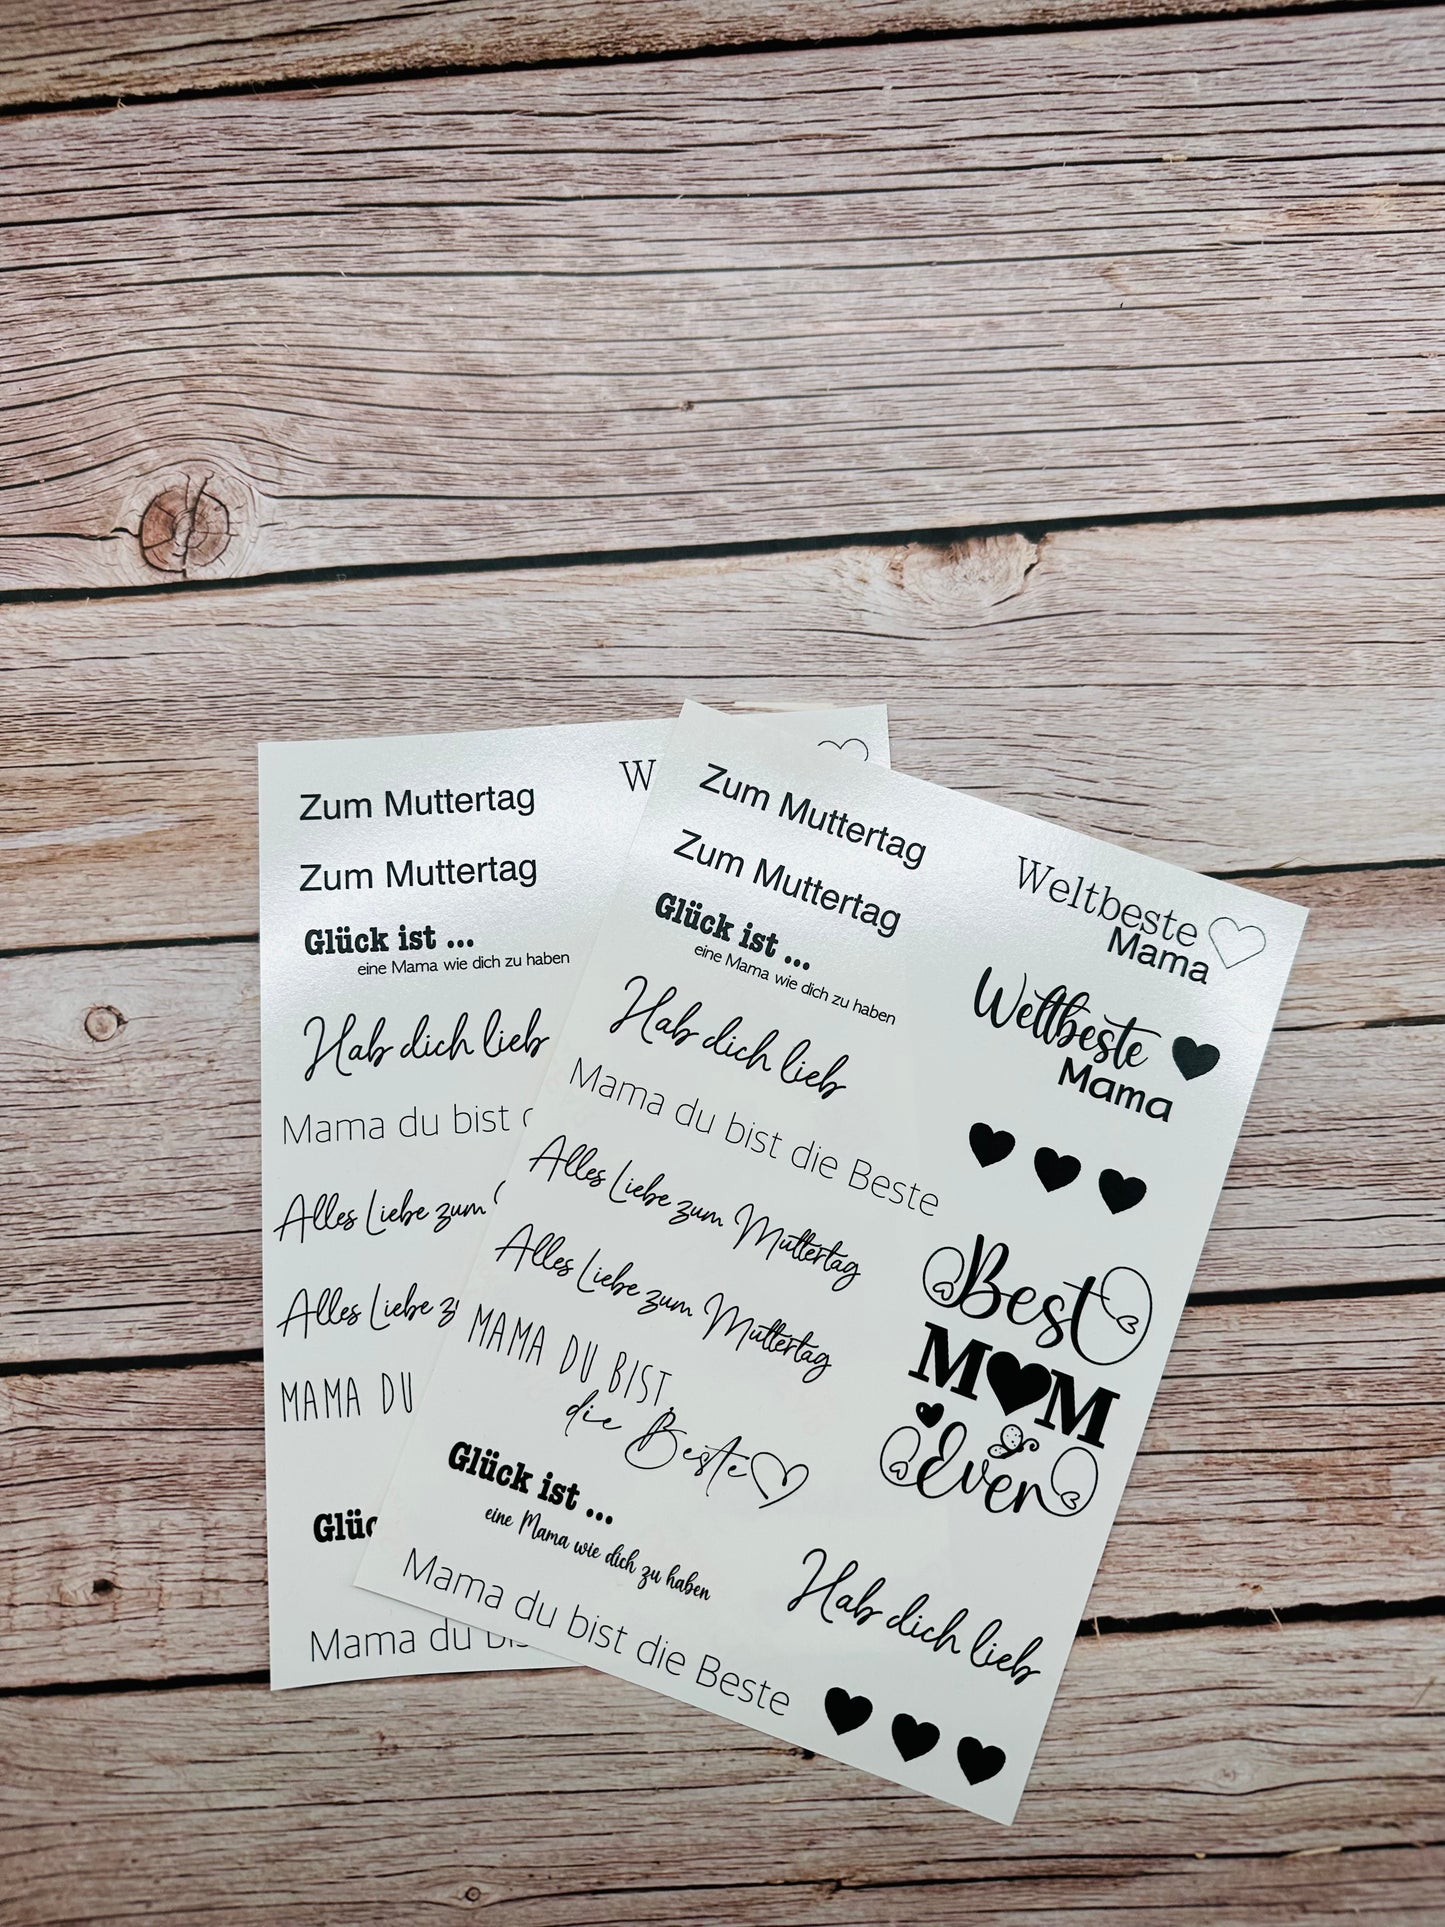 Zum Muttertag
Zum Muttertag
Glück ist ...
eine Mama wie dich zu haben
Hab dich lieb
Mama du bist
Alles Liebe zum
Alles Liebe
MAMA DU
Mama du
Zum Muttertag
Zum Muttertag
Glück ist ...
eine Mama wie dich zu haben
Hab dich lieb
Mama du bist die Beste
Alles Liebe zum Muttertag
Alles Liebe zum Muttertag
MAMA DU BIST
die Beste
Glück ist ...
eine Mama wie dich zu haben
Mama du bist die Beste
Weltbeste
Mama
Weltbeste
Mama
Best
MOM
Ever
Hab dich lieb